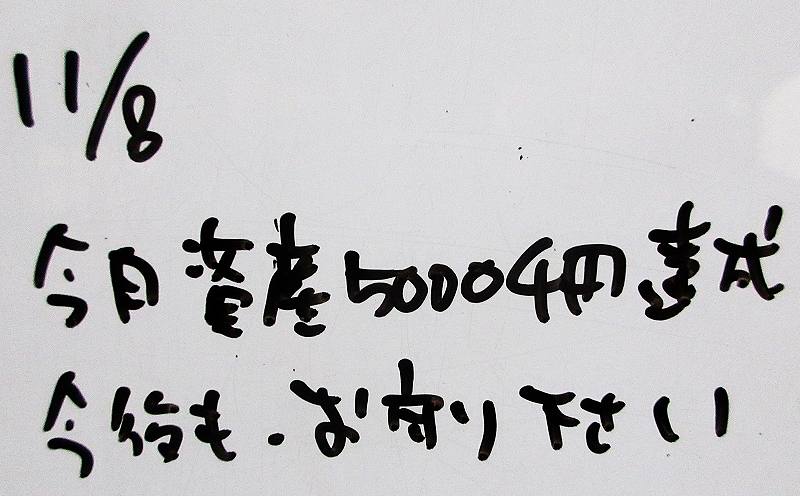 11/8
今月資産5000万円達成
今後も.お守り下さい